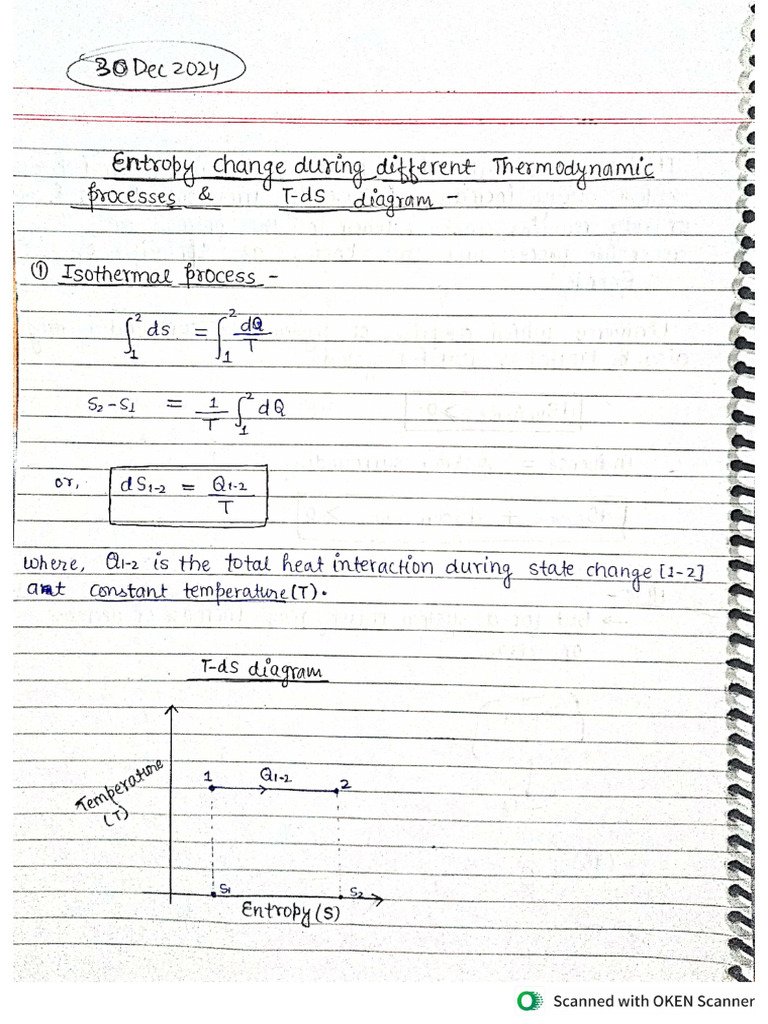 30 Dec 2024
Entropy change during different Thermodynamic
processes & T-ds diagram -
① Isothermal process -
∫₁² ds = ∫₁² dQ/T
S₂-S₁ = 1/T ∫₁² dQ
or, dS₁₋₂ = Q₁₋₂/T
where, Q₁₋₂ is the total heat interaction during state change [1-2]
at constant temperature (T).
T-ds diagram
Temperature
(T)
1 Q₁₋₂ 2
S₁ S₂
Entropy (S)
Scanned with OKEN Scanner